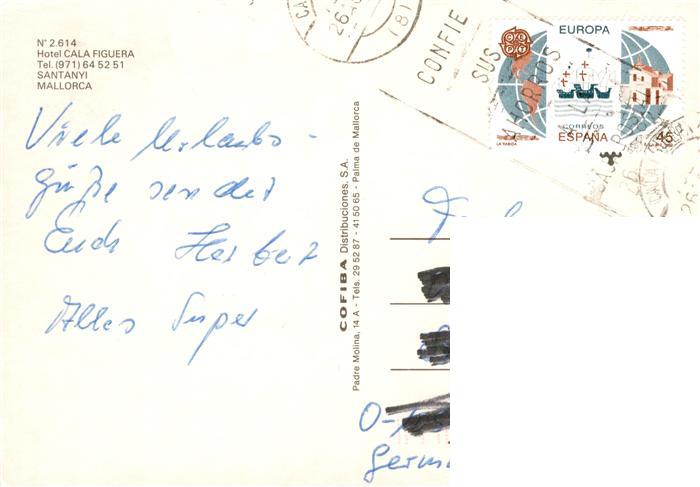 N° 2.614
Hotel CALA FIGUERA
Tel. (971) 64 52 51
SANTANYI
MALLORCA
Viele Urlaubs-
grüße sendet
Euch Herbert
Alles Super
COFIBA Distribuciones, S.A.
Padre Molina, 14 A - Tels. 29 52 87 - 41 50 65 - Palma de Mallorca
CONFIE
SUS
AHORROS
EUROPA
CEPT
CORREOS
ESPAÑA
45
LA RABIDA
Germ